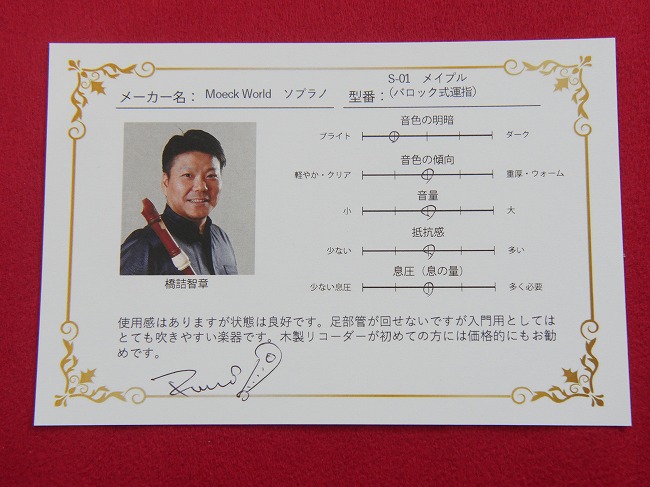 メーカー名： Moeck World　ソプラノ
型番： S-01　メイプル
（バロック式運指）
音色の明暗
ブライト ダーク
音色の傾向
軽やか・クリア 重厚・ウォーム
音量
小 大
抵抗感
少ない 多い
息圧（息の量）
少ない息圧 多く必要
橋詰智章
使用感はありますが状態は良好です。足部管が回せないですが入門用としては
とても吹きやすい楽器です。木製リコーダーが初めての方には価格的にもお勧
めです。